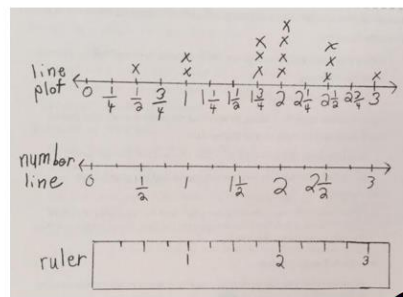 line
plot
0 1/4 1/2 3/4 1 1 1/4 1 1/2 1 3/4 2 2 1/4 2 1/2 2 3/4 3
number
line
0 1/2 1 1 1/2 2 2 1/2 3
ruler
1 2 3